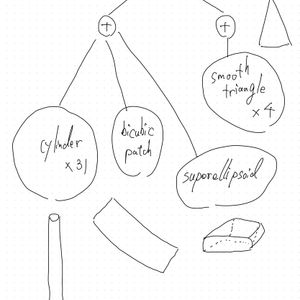 +
+
smooth
triangle
×4
cylinder
×31
bicubic
patch
superellipsoid